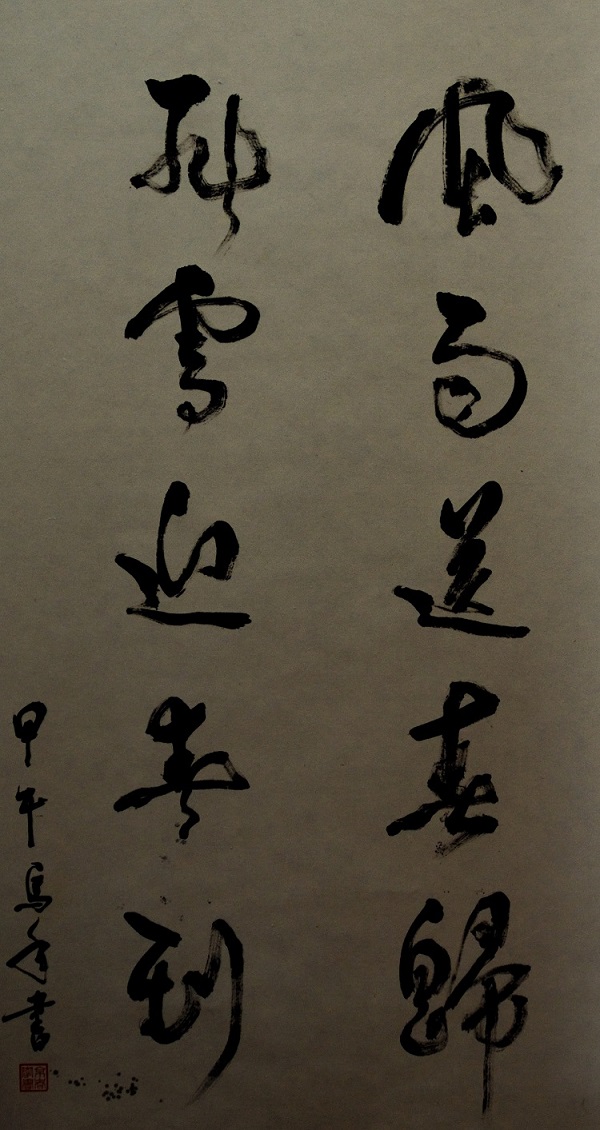 風雨送春歸
飛雪迎春到
甲午馬年書